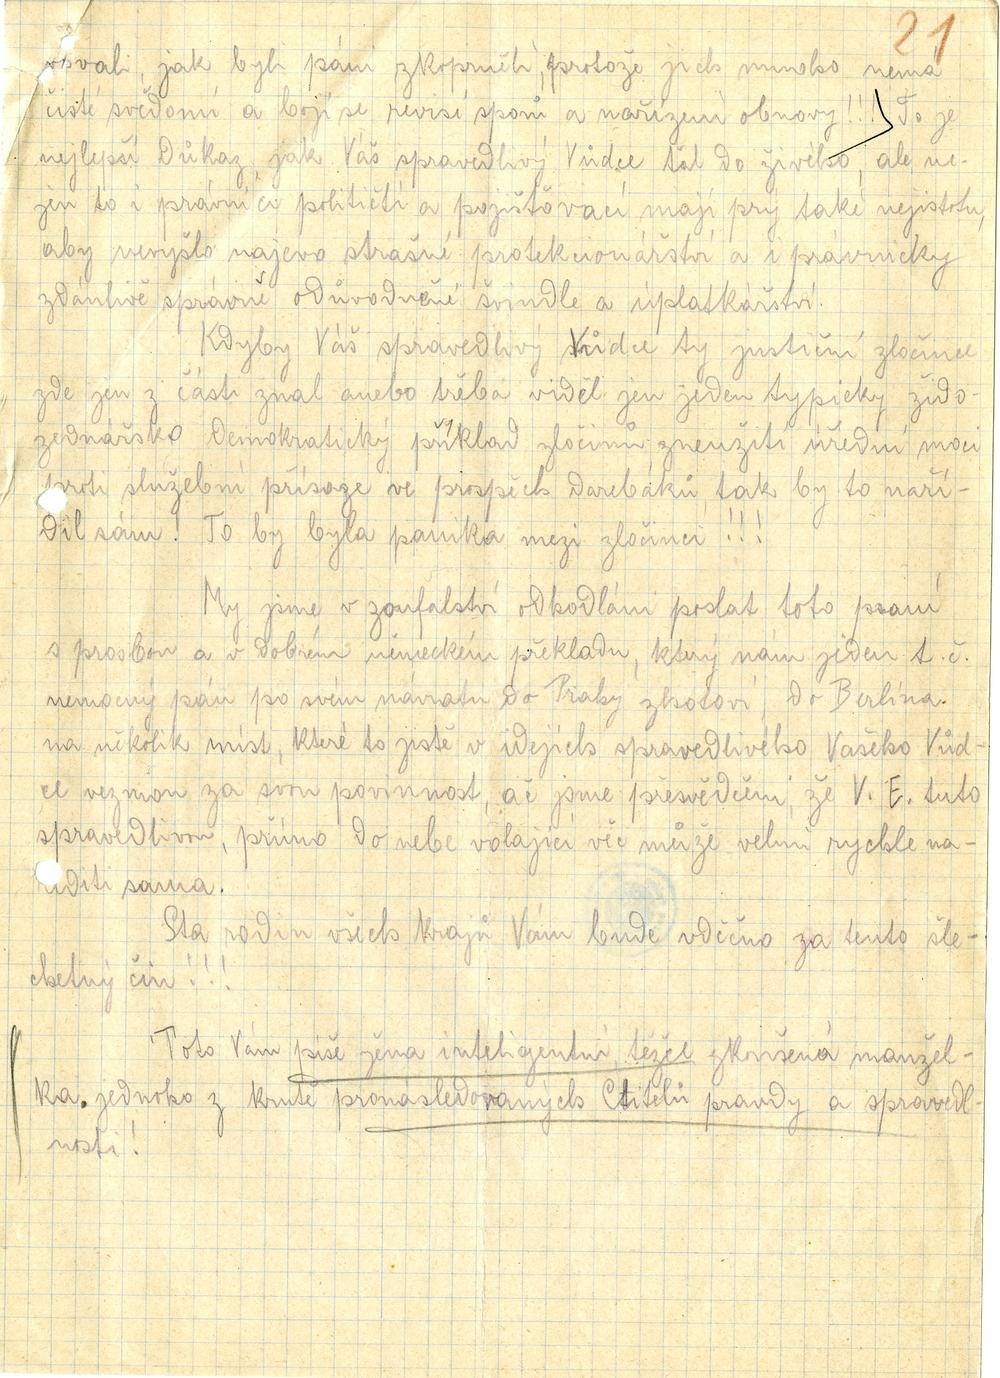 21
vovali, jak byli páni zkoprněli, protože jich mnoho nemá
čisté svědomí a bojí se revisí sporů a nařízení obnovy!!! To je
nejlepší Důkaz, jak Váš spravedlivý Vůdce ťal do živého, ale ne-
jen to i právníci političtí a pojišťovací mají prý také nejistotu,
aby nevyšlo najevo strašné protekcionářství a i právnicky
zdánlivě správně odůvodněné švindle a úplatkářství.
Kdyby Váš spravedlivý Vůdce ty justiční zločince
zde jen z části znal anebo třeba viděl jen jeden typický židо-
zednářsko Demokratický příklad zločinů zneužití úřední moci
proti služební přísaze ve prospěch Darebáků tak by to naří-
Dil sám! To by byla panika mezi zločinci!!!
My jsme v zoufalství odhodláni poslat toto psaní
s prosbou a v Dobrém německém překladu, který nám jeden t.č.
nemocný pán po svém návratu Do Prahy zhotoví, Do Berlína.
na několik míst, které to jistě v idejích spravedlivého Vašeho Vůd-
ce vezmou za svou povinnost, ač jsme přesvědčeni, že V. E. tuto
spravedlivou, přímo Do nebe volající věc může velmi rychle na-
říditi sama.
Sta rodin všech krajů Vám bude vděčno za tento šle-
chetný čin!!!
Toto Vám píše žena inteligentní, těžce zkoušená manžel-
ka. jednoho z krutě pronásledovaných Ctitelů pravdy a spravedl-
nosti!